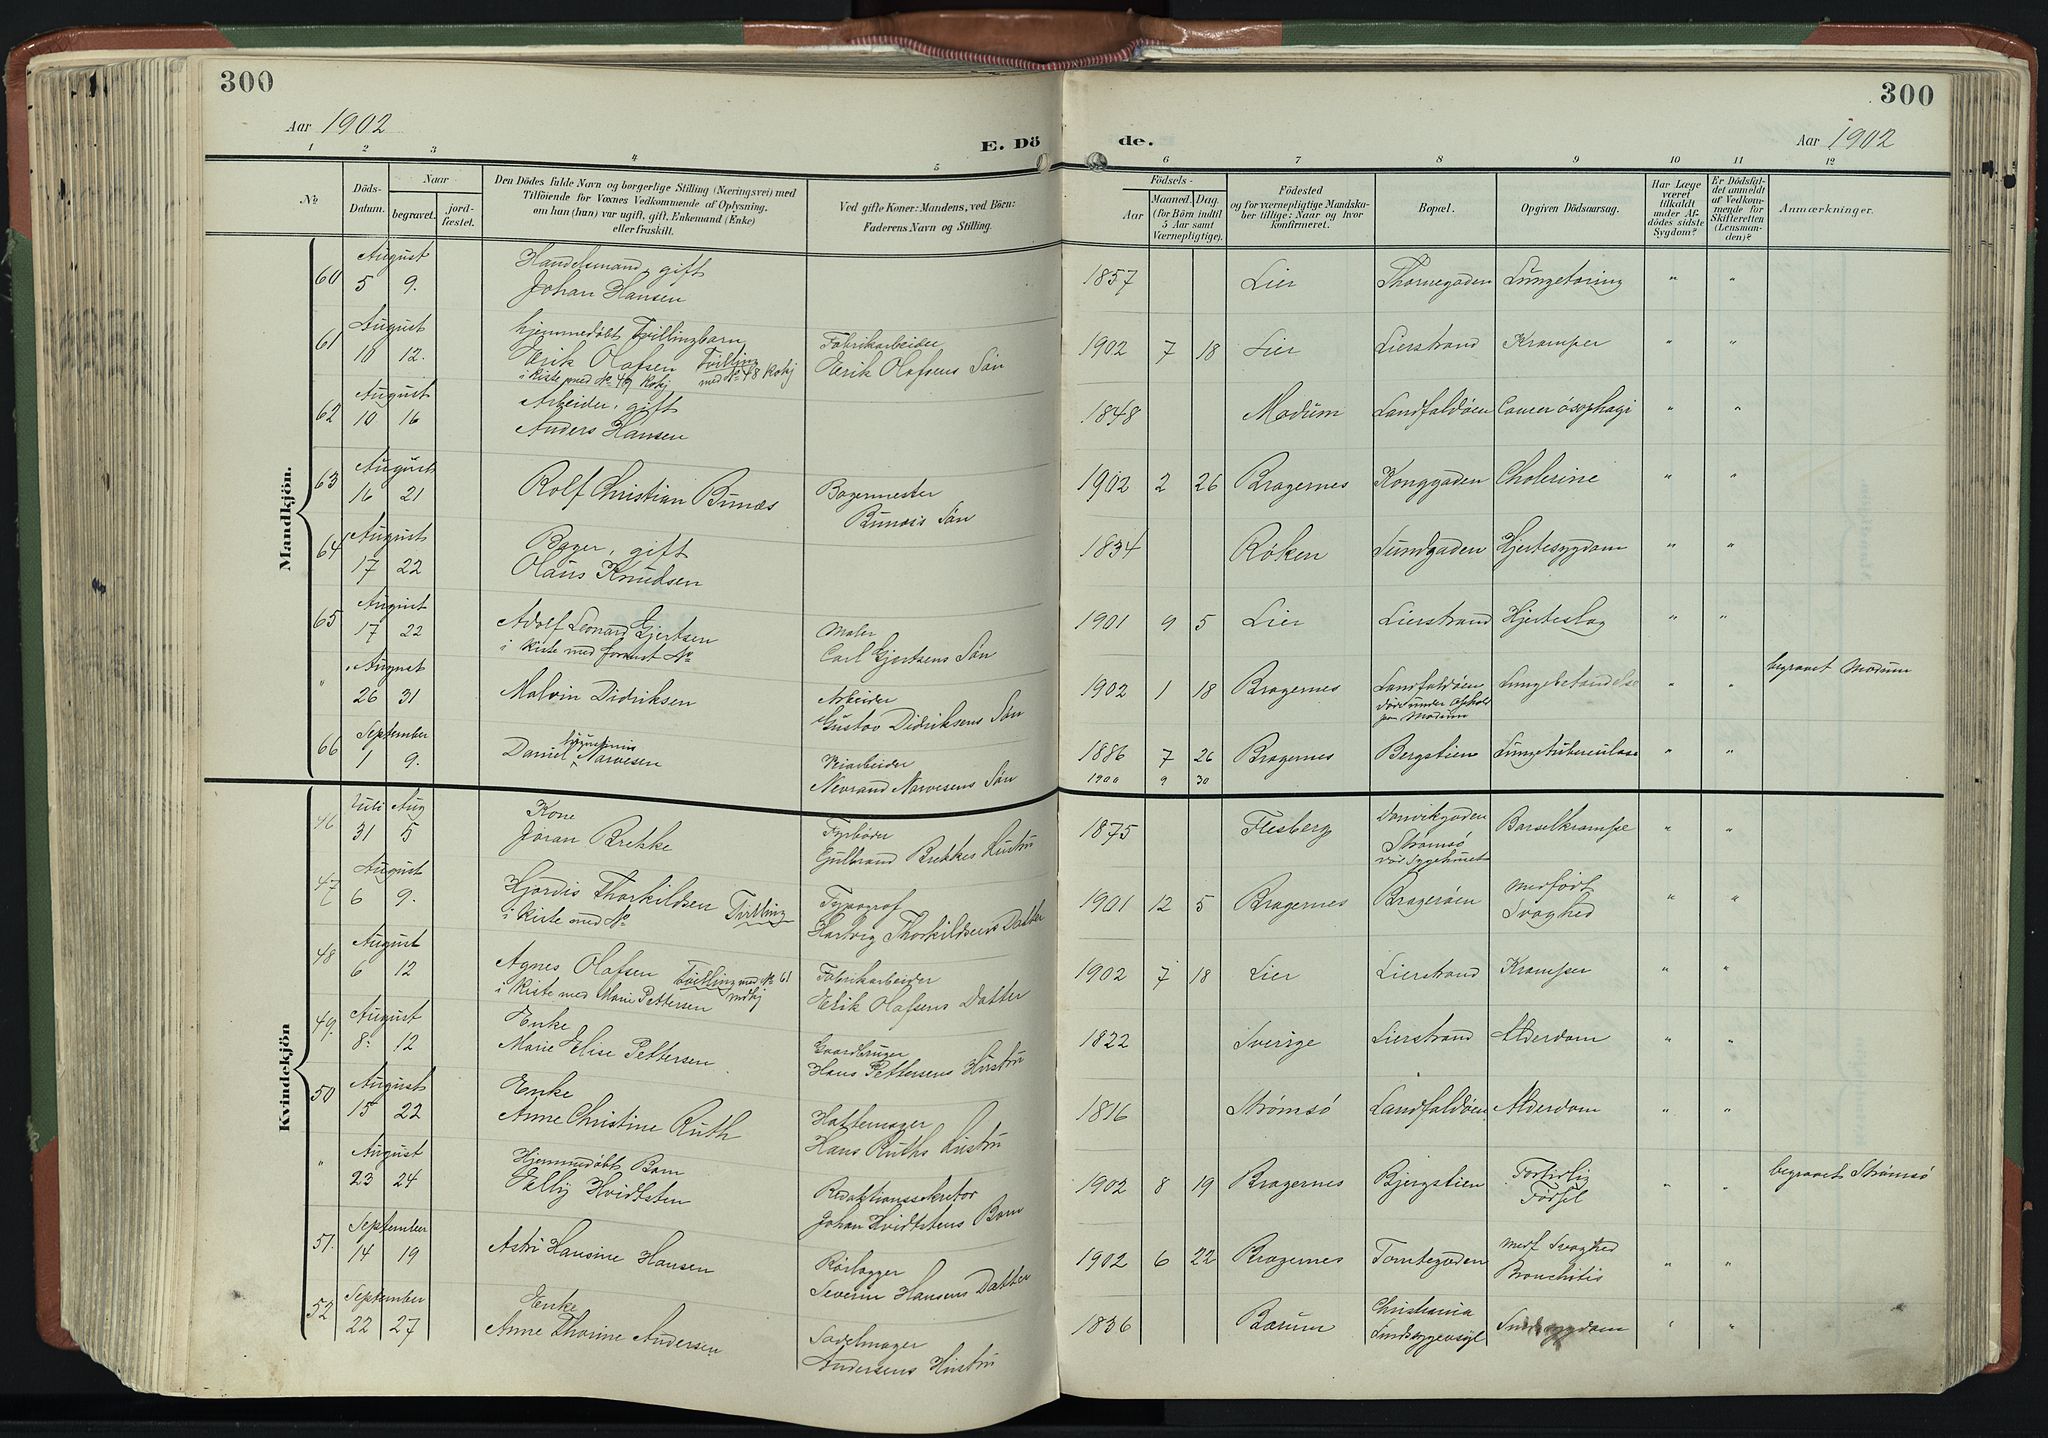 300
300
Aar 1902
E. Dö
de.
Aar 1902
1 2 3 4 5 6 7 8 9 10 11 12
№
Döds-
Datum.
Naar
begravet.
jord-
fæstet.
Den Dödes fulde Navn og borgerlige Stilling (Næringsvei) med
Tilföiende for Voxnes Vedkommende af Oplysning,
om han (hun) var ugift, gift, Enkemand (Enke)
eller fraskilt.
Ved gifte Koner: Mandens, ved Börn:
Faderens Navn og Stilling.
Födsels-
Aar
Maaned. Dag.
(for Börn indtil
5 Aar samt
Værnepligtige).
Födested
og for værnepligtige Mandska-
ber tillige: Naar og hvor
konfirmeret.
Bopæl.
Opgiven Dödsaarsag.
Har Læge
været
tilkaldt
under Af-
dödes sidste
Sygdom?
Er Dödsfal-
det anmeldt
af Vedkom-
mende for
Skifteretten
(Lensman-
den)?
Anmærkninger.
Mandkjön.
60 August Handelsmand, gift
5 9. Johan Hansen 1857 Lier Thornegaden Lungetæring " "
61 August hjemmedøbt Tvillingbarn Fabrikarbeider
10 12. Erik Olafsen Tvilling Erik Olafsens Søn 1902 7 18 Lier Lierstrand Kramper " "
i Kiste med No 49 Kvkj med No 48 Kvkj
62 August Arbeider, gift
10 16 Anders Hansen 1848 Modum Landfaldøen Cancer øsophagi " "
63 August Rolf Christian Bunæs Bagermester
16 21 Bunæs's Søn 1902 2 26 Bragernes Konggaden Cholerine " "
64 August Bager, gift
17 22 Olaus Knudsen 1834 Røken Sundgaden Hjertesygdom " "
65 August Adolf Leonard Gjertsen Maler
17 22 i Kiste med forrest No Carl Gjertsens Søn 1901 9 5 Lier Lierstrand Hjerteslag " "
" August Malvin Didriksen Arbeider
26 31 Gustav Didriksens Søn 1902 1 18 Bragernes Landfaldøen Lungebetændelse " " begravet Modum
død under Ophold
paa Modum
66 September Daniel Narvesen Veiarbeider
1 9. Nevrand Narvesens Søn 1886 7 26 Bragernes Bergstien Lungetuberculose " "
1900 9 30
Kvindekjön
46 Juli Aug Kone Fyrbøder
31 5 Jøran Brekke Gulbrand Brekkes Hustru 1875 Flesberg Danvikgaden Barselkrampe " "
Strømsø
død Sygehuset
47 August Hjørdis Thorkildsen Tvilling Typograf
6 9. i Kiste med No Hartvig Thorkildsens Datter 1901 12 5 Bragernes Bragerøen Medfødt " "
Svaghed
48 August Agnes Olafsen Tvilling med No 61 Fabrikarbeider
6 12 i Kiste med Marie Pettersen mdkj Erik Olafsens Datter 1902 7 18 Lier Lierstrand Kramper " "
49. August Enke Gaardbruger
8. 12 Marie Elise Pettersen Hans Pettersens Hustru 1822 Sverige Lierstrand Alderdom " "
50 August Enke Hattemager
15 22 Anne Christine Ruth Hans Ruths Hustru 1816 Strømsø Landfaldøen Alderdom " "
" August Hjemmedøbt Barn Redaktionssekretær
23 24 Elly Hvidtsten Johan Hvidtstens Barn 1902 8 19 Bragernes Bjergstien Fortidlig " " begravet Strømsø
Førsel
51. September Astri Hansine Hansen Rørlægger
14 19 Severin Hansens Datter 1902 6 22 Bragernes Tomtegaden Medf Svaghed " "
Bronchitis
52 September Enke Sadelmager
22 27 Anne Thorine Andersen Andersens Hustru 1836 Bærum Christiania Sindssygdom " "
Sindssygeasyl